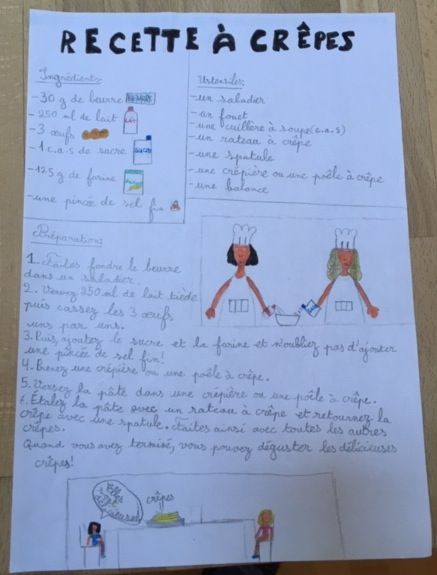 RECETTE À CRÊPES
Ingrédients
-30 g de beurre
-250 ml de lait
-3 œufs
-1 c.a.s de sucre
-125 g de farine
-une pincée de sel fin
Ustensiles
-un saladier
-un fouet
-une cuillère à soupe(c.a.s)
-un rateau à crêpe
-une spatule
-une crêpière ou une poêle à crêpe
-une balance
Préparation
1. Faites fondre le beurre
dans un saladier.
2. Versez 250 ml de lait tiède
puis cassez les 3 œufs
uns par uns.
3. Puis, ajoutez le sucre et la farine et n'oubliez pas d'ajouter
une pincée de sel fin!
4. Prenez une crêpière ou une poêle à crêpe.
5. Versez la pâte dans une crêpière ou une poêle à crêpe.
6. Étalez la pâte avec un rateau à crêpe et retournez la
crêpe avec une spatule. Faites ainsi avec toutes les autres
crêpes.
Quand vous avez terminé, vous pouvez déguster les délicieuses
crêpes!
Elles
sont
délicieuses
crêpes